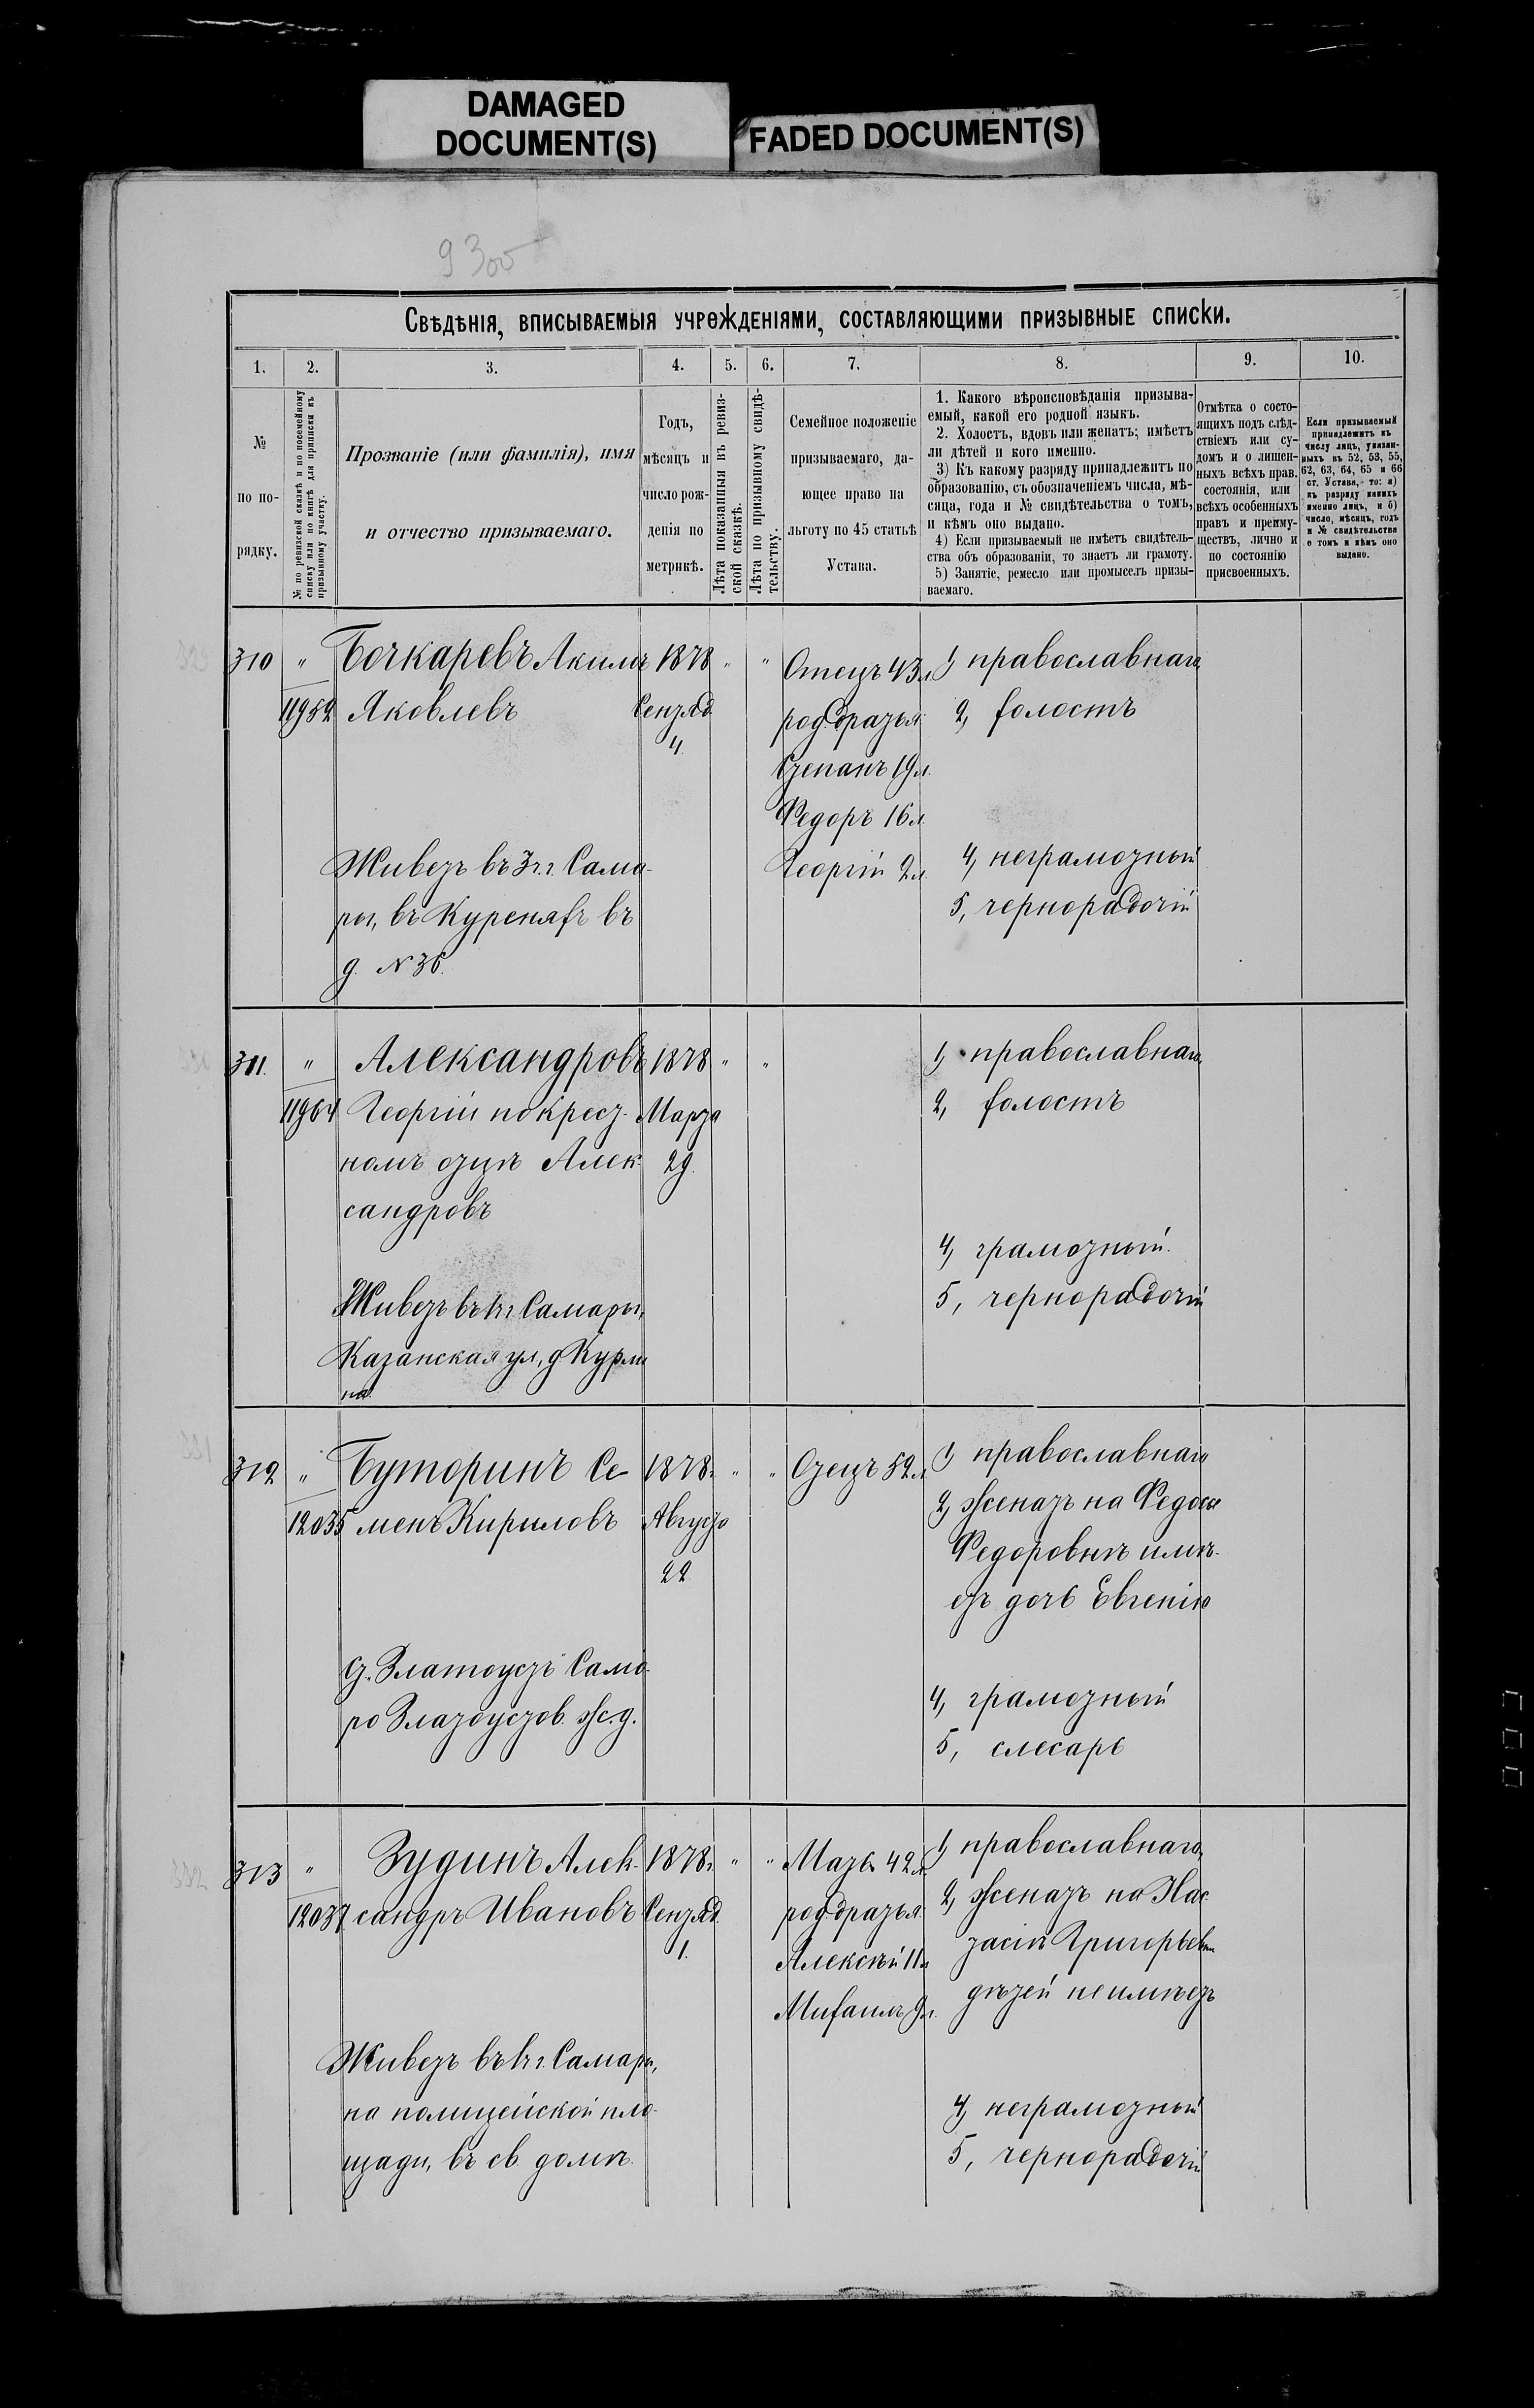 DAMAGED
DOCUMENT(S)
FADED DOCUMENT(S)
9300
Свѣдѣнія, вписываемыя учрежденіями, составляющими призывные списки.
1. 2. 3. 4. 5. 6. 7. 8. 9. 10.
№
по по-
рядку.
№ по ревизской сказкѣ и по посемейному
списку или по книгѣ для приписки къ
призывному участку.
Прозваніе (или фамилія), имя
и отчество призываемаго.
Годъ,
мѣсяцъ и
число рож-
денія по
метрикѣ.
Лѣта показанныя въ ревиз-
ской сказкѣ.
Лѣта по призывному свидѣ-
тельству.
Семейное положеніе
призываемаго, да-
ющее право на
льготу по 45 статьѣ
Устава.
1. Какого вѣроисповѣданія призыва-
емый, какой его родной языкъ.
2. Холостъ, вдовъ или женатъ; имѣетъ
ли дѣтей и кого именно.
3) Къ какому разряду принадлежитъ по
образованію, съ обозначеніемъ числа, мѣ-
сяца, года и № свидѣтельства о томъ,
и кѣмъ оно выдано.
4) Если призываемый не имѣетъ свидѣтель-
ства объ образованіи, то знаетъ ли грамоту.
5) Занятіе, ремесло или промыселъ призы-
ваемаго.
Отмѣтка о состо-
ящихъ подъ слѣд-
ствіемъ или су-
домъ и о лишен-
ныхъ всѣхъ правъ
состоянія, или
всѣхъ особенныхъ
правъ и преиму-
ществъ, лично и
по состоянію
присвоенныхъ.
Если призываемый
принадлежитъ къ
числу лицъ, указан-
ныхъ въ 52, 53, 55,
62, 63, 64, 65 и 66
ст. Устава, то: а)
къ разряду какихъ
именно лицъ, и б)
число, мѣсяцъ, годъ
и № свидѣтельства
о томъ и кѣмъ оно
выдано.
310 "
11952
Бочкаревъ Акимъ
Яковлевъ
Живетъ въ 3 ч. г. Сама-
ры, въ Куреняхъ въ
д. № 36.
1878
Сентяб
4.
" "
Отецъ 43 л
род. братья
Степанъ 19 л.
Федоръ 16 л.
Георгій 2 л.
1, православнаго
2, холостъ
4, неграмотный
5, чернорабочій
311. "
11964
Александровъ
Георгій по крест-
номъ отцѣ Алек-
сандровъ
Живетъ въ 1 ч. г. Самары,
Казанская ул, д Курли
на.
1878
Марта
29.
" "
1, православнаго
2, холостъ
4, грамотный.
5, чернорабочій
312 "
12035
Буторинъ Се-
менъ Кириловъ
Ст. Златоустъ Сама-
ро Златоустов. ж. д.
1878 г.
Августа
22
" "
Отецъ 52 л.
1, православнаго
2, женатъ на Федосе
Федоровнѣ имѣ-
етъ дочь Евгенію
4, грамотный
5, слесарь
313 "
12037
Зудинъ Алек-
сандръ Ивановъ
Живетъ въ 1 ч. г. Самары,
на полицейской пло-
щади, въ св. домѣ.
1878 г.
Сентяб.
1.
" "
Мать 42 л.
род. братья
Алексѣй 11 л
Михаилъ 9 л.
1, православнаго
2, женатъ на Нас
тасіи Григорьевн
дѣтей неимѣетъ
4, неграмотный
5, чернорабочій